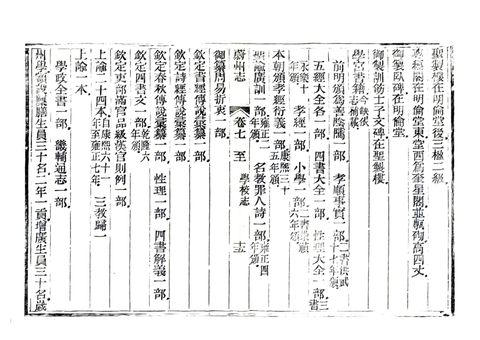 聖製樓在明倫堂後三極二級
尊經閣在明倫堂東堂西爲奎星閣並甎甃高四丈
御製臥碑在明倫堂
御製訓筯士子文碑在聖製樓
學宮書籍
前明頒爲善陰隲一部 孝順事實一部
五經大全各一部 四書大全一部 性理大全一部
孝經一部 小學一部
本朝頒孝經衍義一部
聖諭廣訓一部 名教罪人詩一部
蔚州志 卷七 至 學校志
御纂周易折衷一部
欽定書經傳說彙纂一部
欽定詩經傳說彙纂一部
欽定春秋傳說彙纂一部 性理一部 四書解義一部
欽定四書文一部
欽定吏部滿官品級漢官則例一部
上諭二十四本 三教歸一
上諭一本
學政全書一部 畿輔通志一部
州學 生員三十名二年一貢增廣生員三十名歲